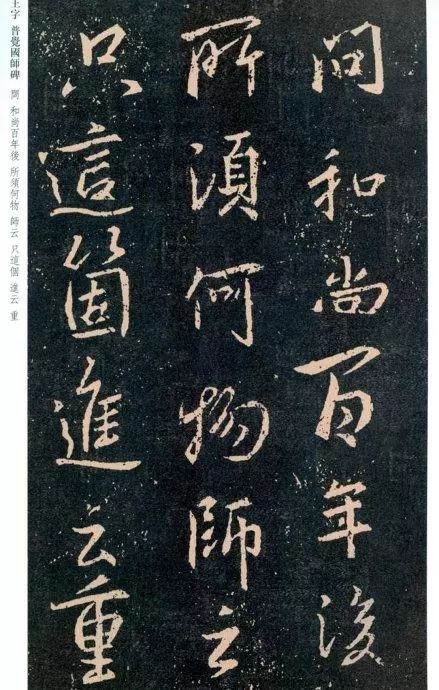 問和尚百年後
所須何物師云
只這箇進云重
王字 普覺國師碑 問 和尚百年後 所須何物 師云 只這個 進云 重